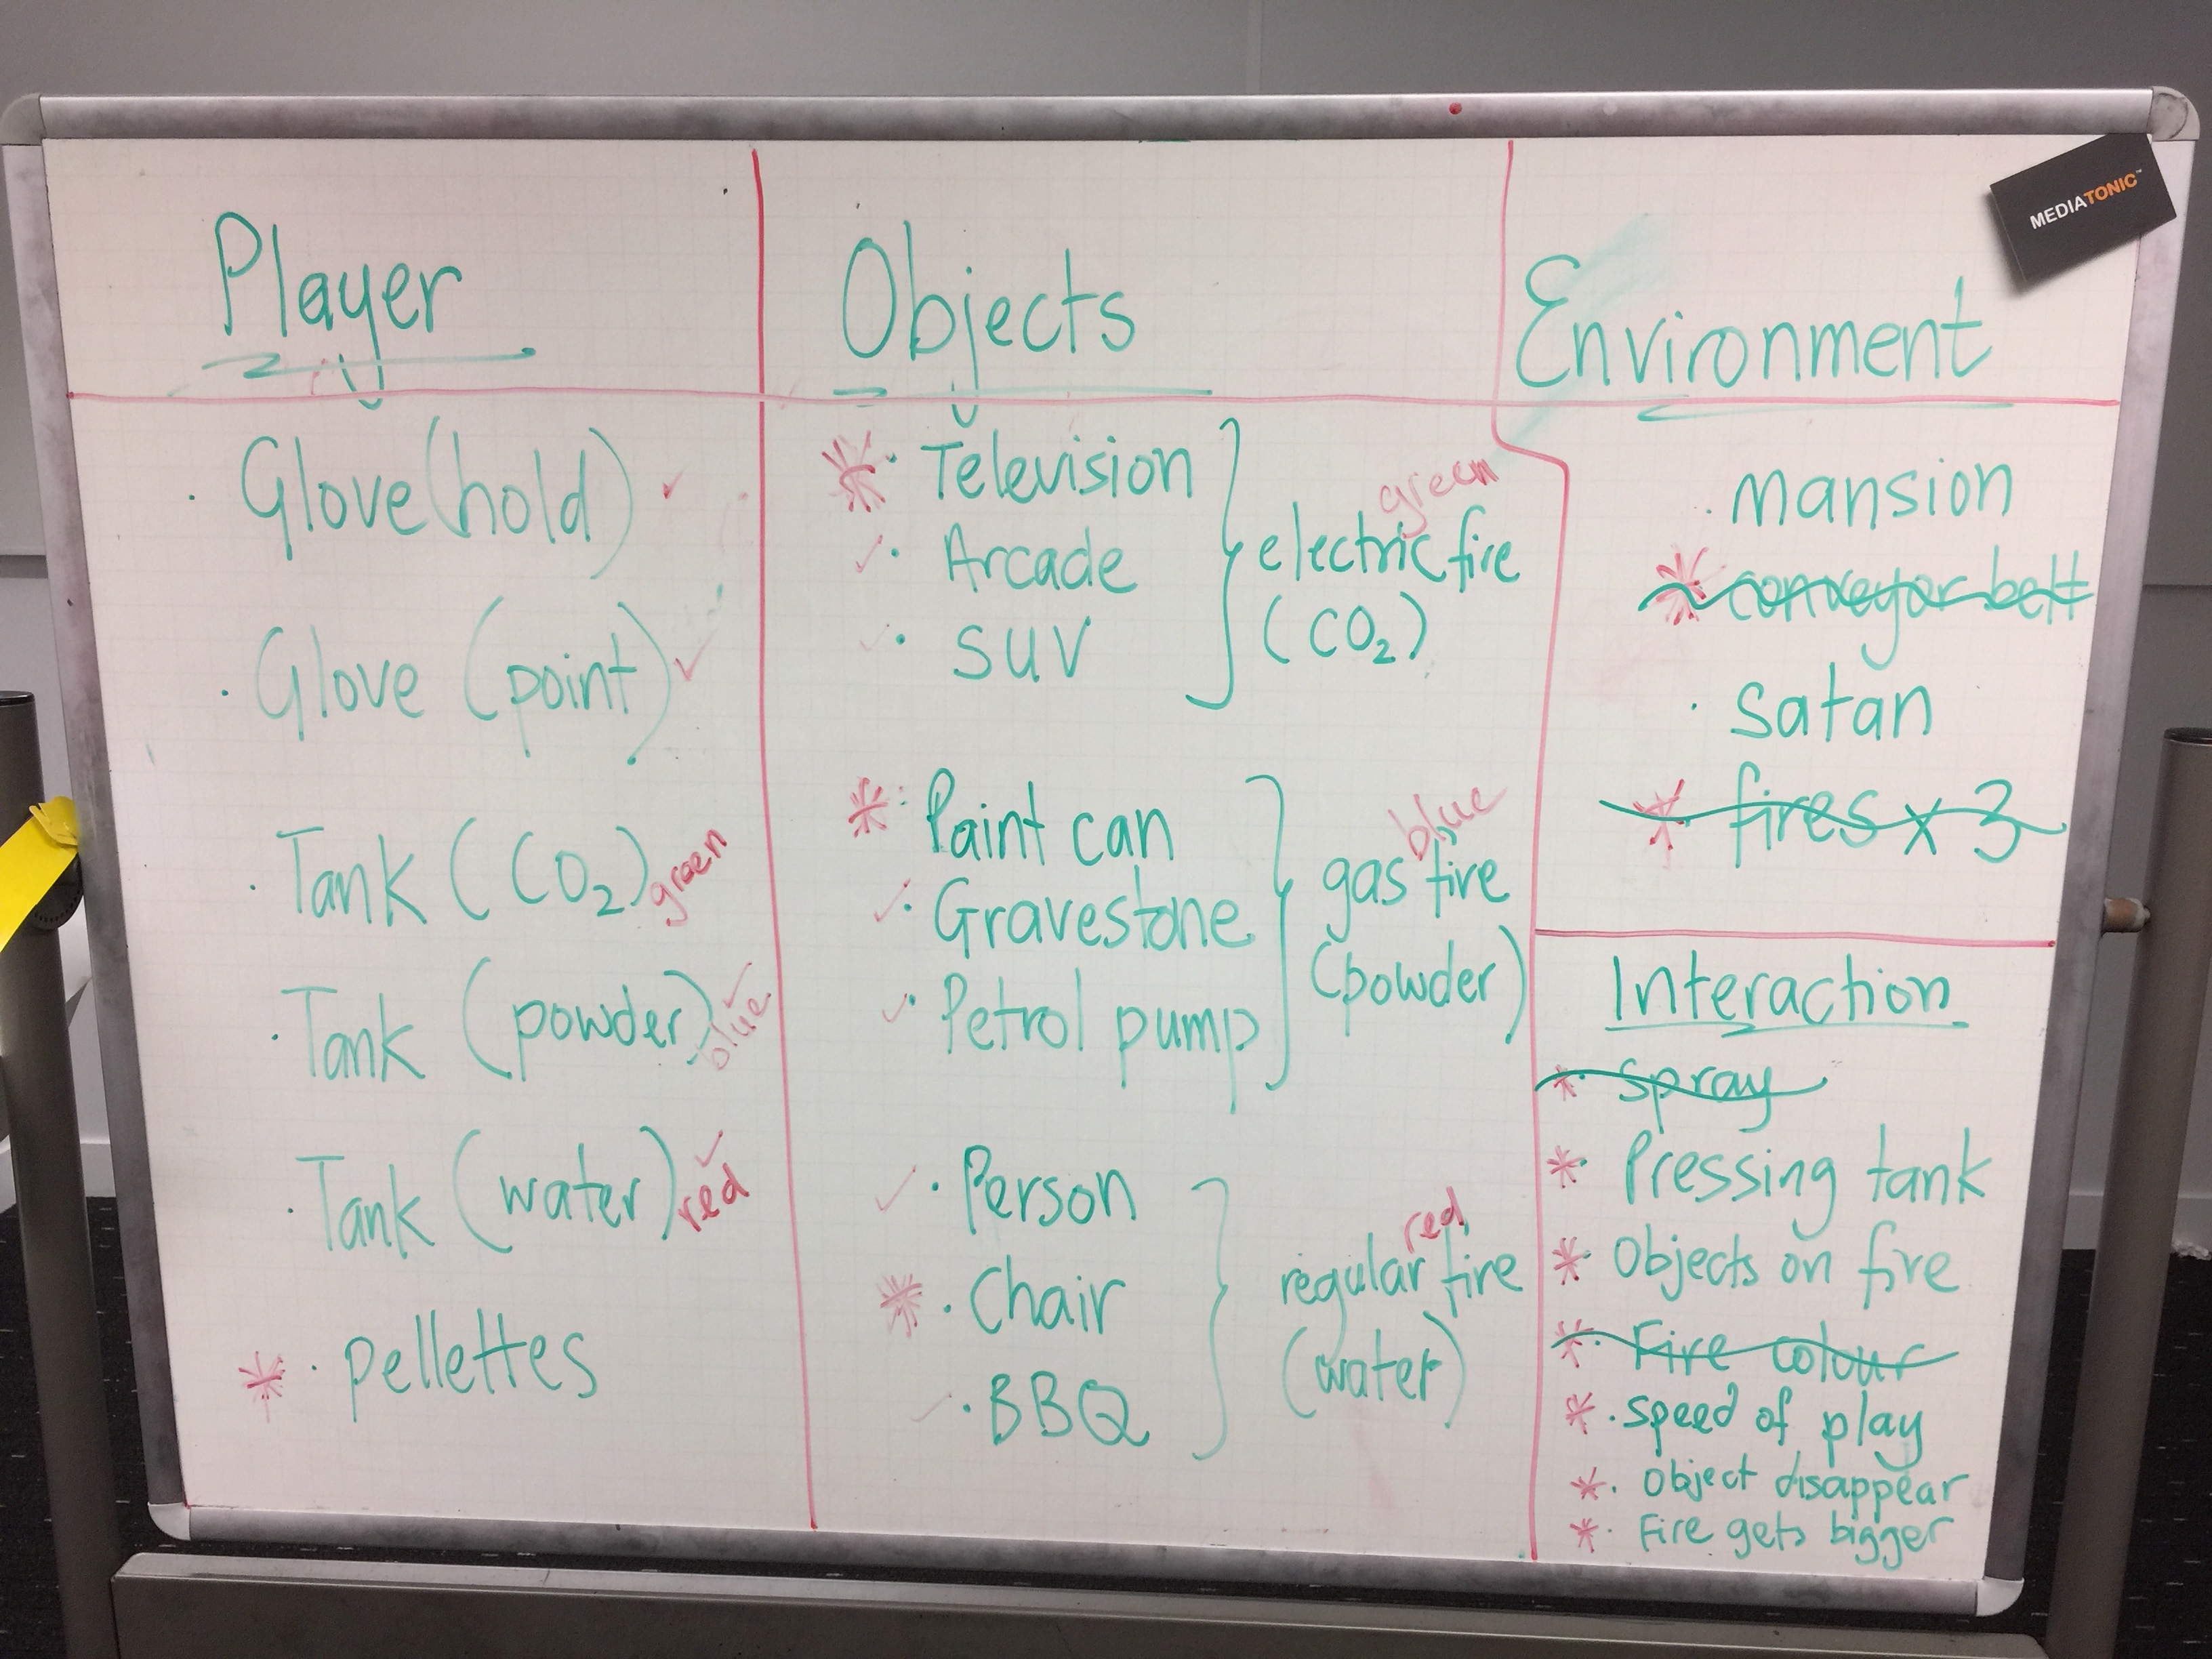 MEDIATONIC™
Player
Glove (hold) ✓
Glove (point) ✓
Tank (CO₂) green
Tank (powder) ✓ blue
Tank (water) ✓ red
* · pellettes
Objects
* · Television
✓ · Arcade
✓ · SUV
green
electric fire
(CO₂)
* · Paint can
✓ · Gravestone
✓ · Petrol pump
blue
gas fire
(powder)
✓ · Person
* · Chair
✓ · BBQ
red
regular fire
(water)
Environment
· mansion
* conveyor belt
· satan
* fires x 3
Interaction
* · spray
* · Pressing tank
* · Objects on fire
* · Fire colour
* · speed of play
* · Object disappear
* · Fire gets bigger